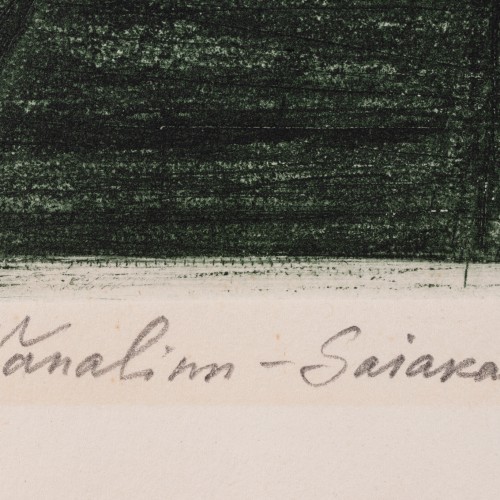 Vanalinn - Saiaka